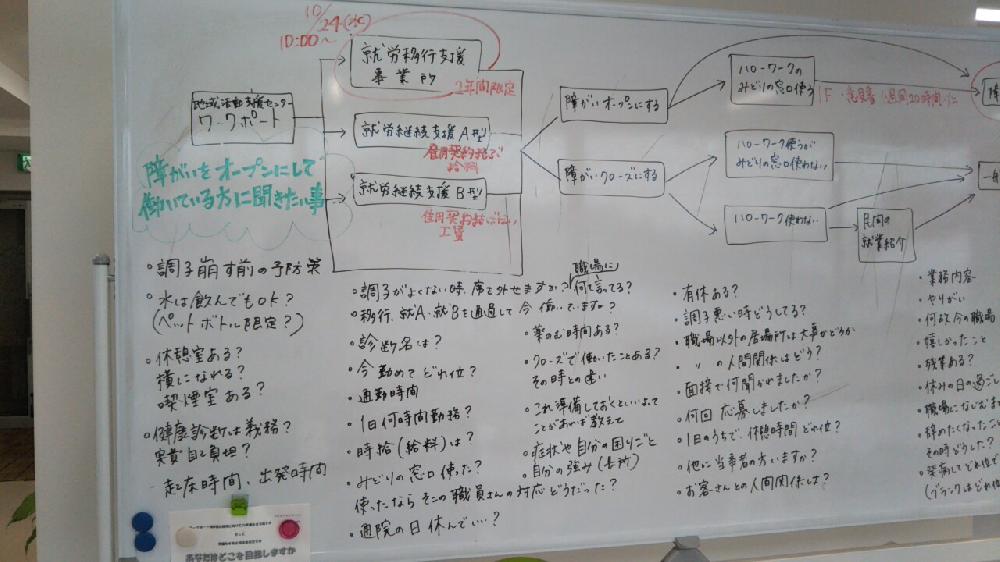 10/24(水)
10:00〜
就労移行支援
事業所
2年間限定
地域活動支援センター
ワークポート
就労継続支援A型
雇用契約
給料
就労継続支援B型
工賃
障がいオープンにする
障がいクローズにする
ハローワークの
みどりの窓口使う
1F
意見書
週間20時間
ハローワーク使うが
みどりの窓口使わない
ハローワーク使わない
民間の
就業紹介
障がいをオープンにして
働いている方に聞きたい事
・調子崩す前の予防策
・水は飲んでもOK?
(ペットボトル限定?)
・休憩室ある?
横になれる?
喫煙室ある?
・健康診断は義務?
実費自己負担?
・起床時間、出発時間
・調子がよくない時、席を外せますか?
職場に何て言ってる?
・移行、就A、就Bを通過して今働いていますか?
・診断名は?
・今勤めてどれ位?
・通勤時間
・1日何時間勤務?
・時給(給料)は?
・みどりの窓口使った?
使ったならそこの職員さんの対応どうだった?
・通院の日休んでいい?
・薬のむ時間ある?
・クローズで働いたことある?
その時との違い
・これ準備しておくといいよって
ことがあれば教えて
・症状や自分の困りごと
自分の強み(長所)
・有休ある?
・調子悪い時どうしてる?
・職場以外の居場所は大事かどうか
・〃の人間関係はどう?
・面接で何聞かれましたか?
・何回応募しましたか?
・1日のうちで、休憩時間どれ位?
・他に当事者の方いますか?
・お客さんとの人間関係は?
・業務内容
・やりがい
・何故今の職場
・嬉しかったこと
・残業ある?
・休みの日の過ごし
・職場になじむま
・辞めたくなったこと
その時どうした?
・発病してどれ位で
(ブランクはどれ位
あなたはどこを目指しますか